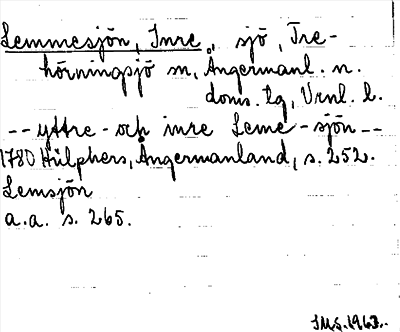 Lemmesjön, Inre, sjö, Tre-
hörningsjö sn, Ångermanl. n.
doms. tg, Vrnl. l.
-- yttre - och inre Leme - sjön --
1780 Hülphers, Ångermanland, s. 252.
Lemsjön
a.a. s. 265.